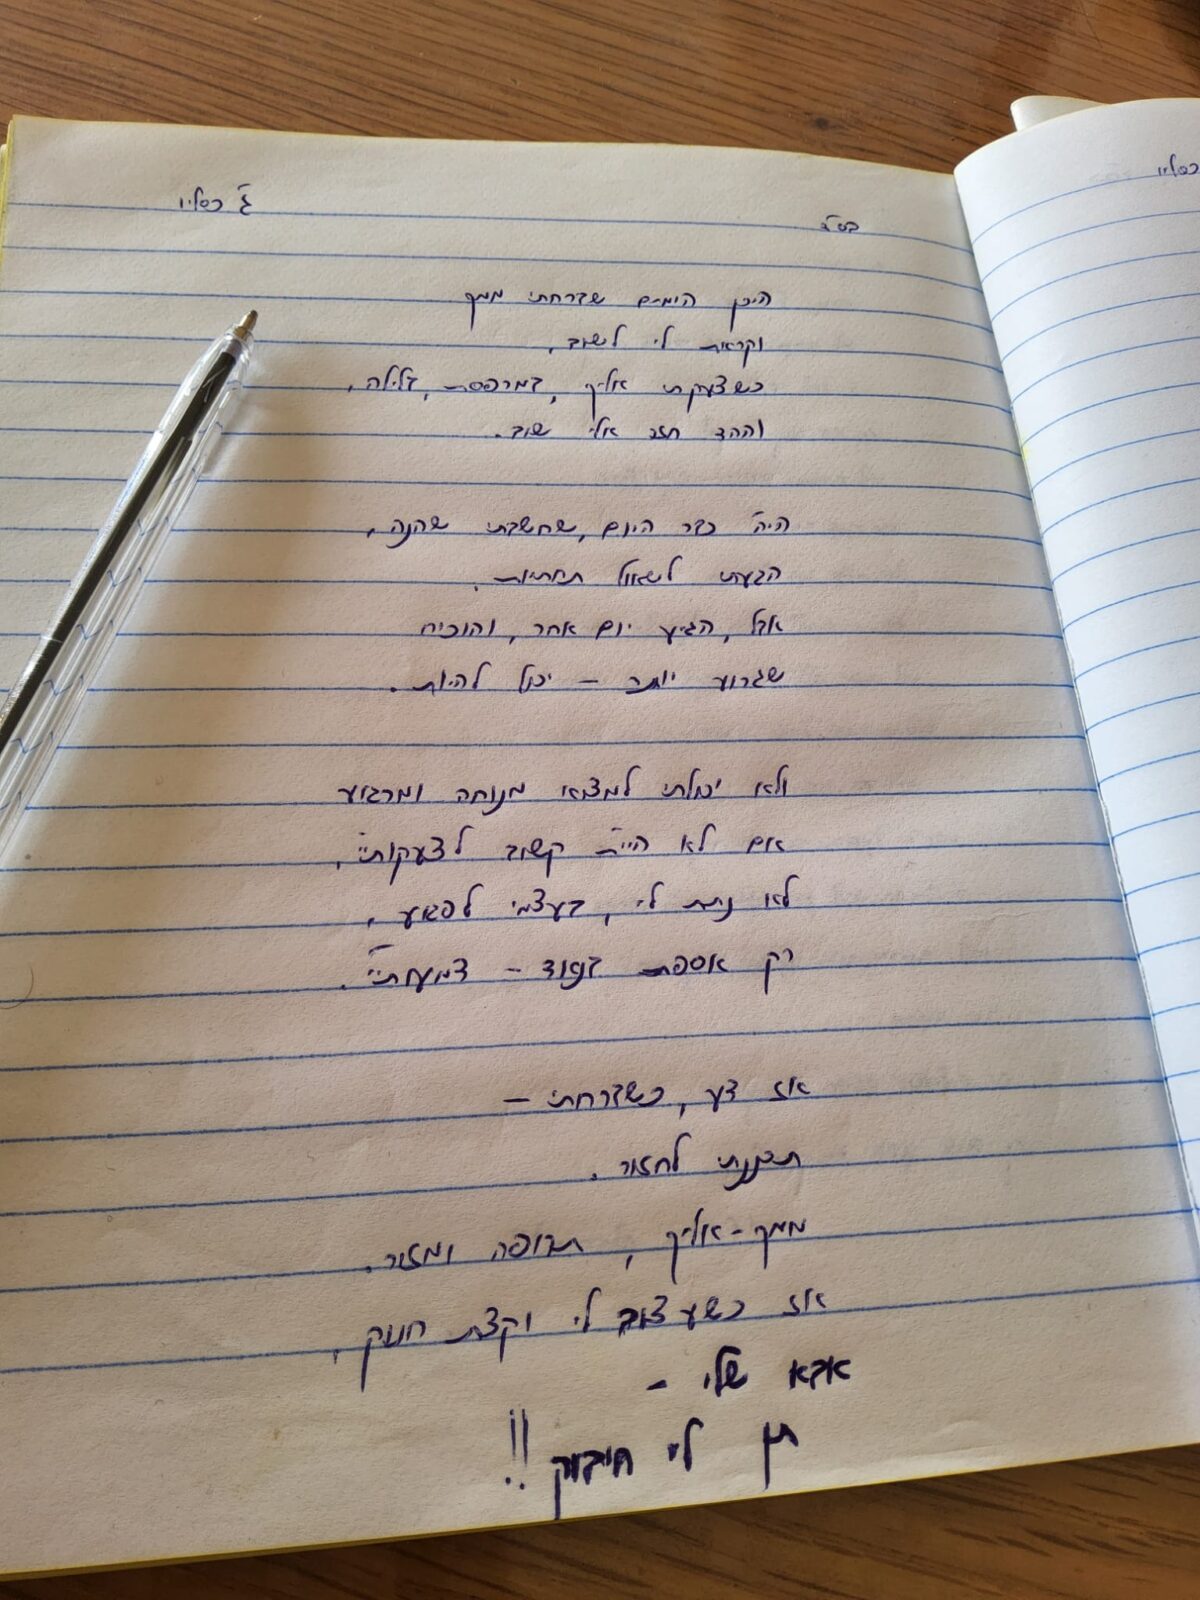 בס״ד
ג׳ כסליו
כסליו
היכן הימים שברחתי ממך
וקראת לי לשוב,
כשצעקתי אליך, במרפסת, בלילה,
וההד חזר אלי שוב.
היה כבר היום, שחשבתי שהנה,
הגעתי לשאול תחתיות.
אבל, הגיע יום אחר, והוכיח
שגרוע יותר – יכול להיות.
ולא יכולתי למצוא מנוחה ומרגוע
אם לא היית קשוב לצעקותיי,
לא נתת לי, בעצמי לפגוע,
רק אספת בנאוד – דמעותיי.
אז דע, כשברחתי –
תכננתי לחזור.
ממך-אליך, תרופה ומזור.
אז כשעצוב לי וקצת חונק,
אבא שלי –
תן לי חיבוק!!